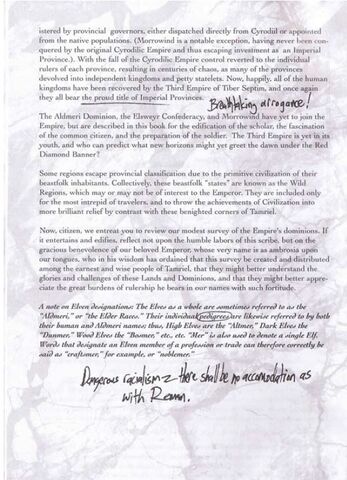 istered by provincial governors, either dispatched directly from Cyrodiil or appointed
from the native populations. (Morrowind is a notable exception, having never been con-
quered by the original Cyrodilic Empire and thus escaping investment as an Imperial
Province.) With the fall of the Cyrodilic Empire control reverted to the individual
rulers of each province, resulting in centuries of chaos, as many of the provinces
devolved into independent kingdoms and petty statelets. Now, happily, all of the human
kingdoms have been recovered by the Third Empire of Tiber Septim, and once again
they all bear the proud title of Imperial Provinces.
Breathtaking arrogance!
The Aldmeri Dominion, the Elsweyr Confederacy, and Morrowind have yet to join the
Empire, but are described in this book for the edification of the scholar, the fascination
of the common citizen, and the preparation of the soldier. The Third Empire is yet in its
youth, and who can predict what new horizons might yet greet the dawn under the Red
Diamond Banner?
Some regions escape provincial classification due to the primitive civilization of their
beastfolk inhabitants. Collectively, these beastfolk "states" are known as the Wild
Regions, which may or may not be of interest to the Emperor. They are included only
for the most intrepid of travelers, and to throw the achievements of Civilization into
more brilliant relief by contrast with these benighted corners of Tamriel.
Now, citizen, we entreat you to review our modest survey of the Empire's dominions. If
it entertains and edifies, reflect not upon the humble labors of this scribe, but on the
gracious benevolence of our beloved Emperor, whose very name is as ambrosia upon
our tongues, who in his wisdom has ordained that this survey be created and distributed
among the earnest and wise people of Tamriel, that they might better understand the
glories and challenges of these Lands and Dominions, and that they might better appre-
ciate the great burdens of rulership he bears in our names with such fortitude.
A note on Elven designations: The Elves as a whole are sometimes referred to as the
"Aldmeri," or "the Elder Races." Their individual pedigrees are likewise referred to by both
their human and Aldmeri names; thus, High Elves are the "Altmer," Dark Elves the
"Dunmer," Wood Elves the "Bosmer," etc., etc. "Mer" is also used to denote a single Elf.
Words that designate an Elven member of a profession or trade can therefore correctly be
said as "craftsmer," for example, or "noblemer."
Dangerous racialism - there shall be no accomodation as
with Reman.